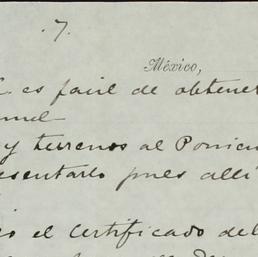 .7.
México,
es facil de obtener
y terrenos al Ponien
esentarlo pues allí
el certificado del